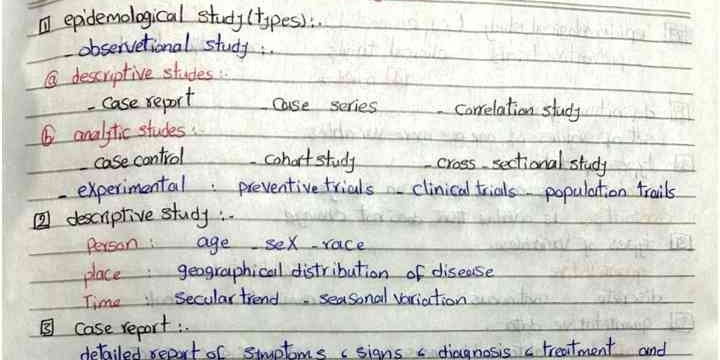 1 epidemological study (types):.
- observetional study :.
a descriptive studes :.
- case report - Case series - Correlation study
b analytic studes :
- case control - cohort study - cross-sectional study
- experimental : preventive trials - clinical trials - population trails
2 descriptive study :.
Person : age - sex - race
place : geographical distribution of disease
Time : secular trend - seasonal variation
3 Case report :.
detailed report of symptoms c signs c diagnosis c treatment and